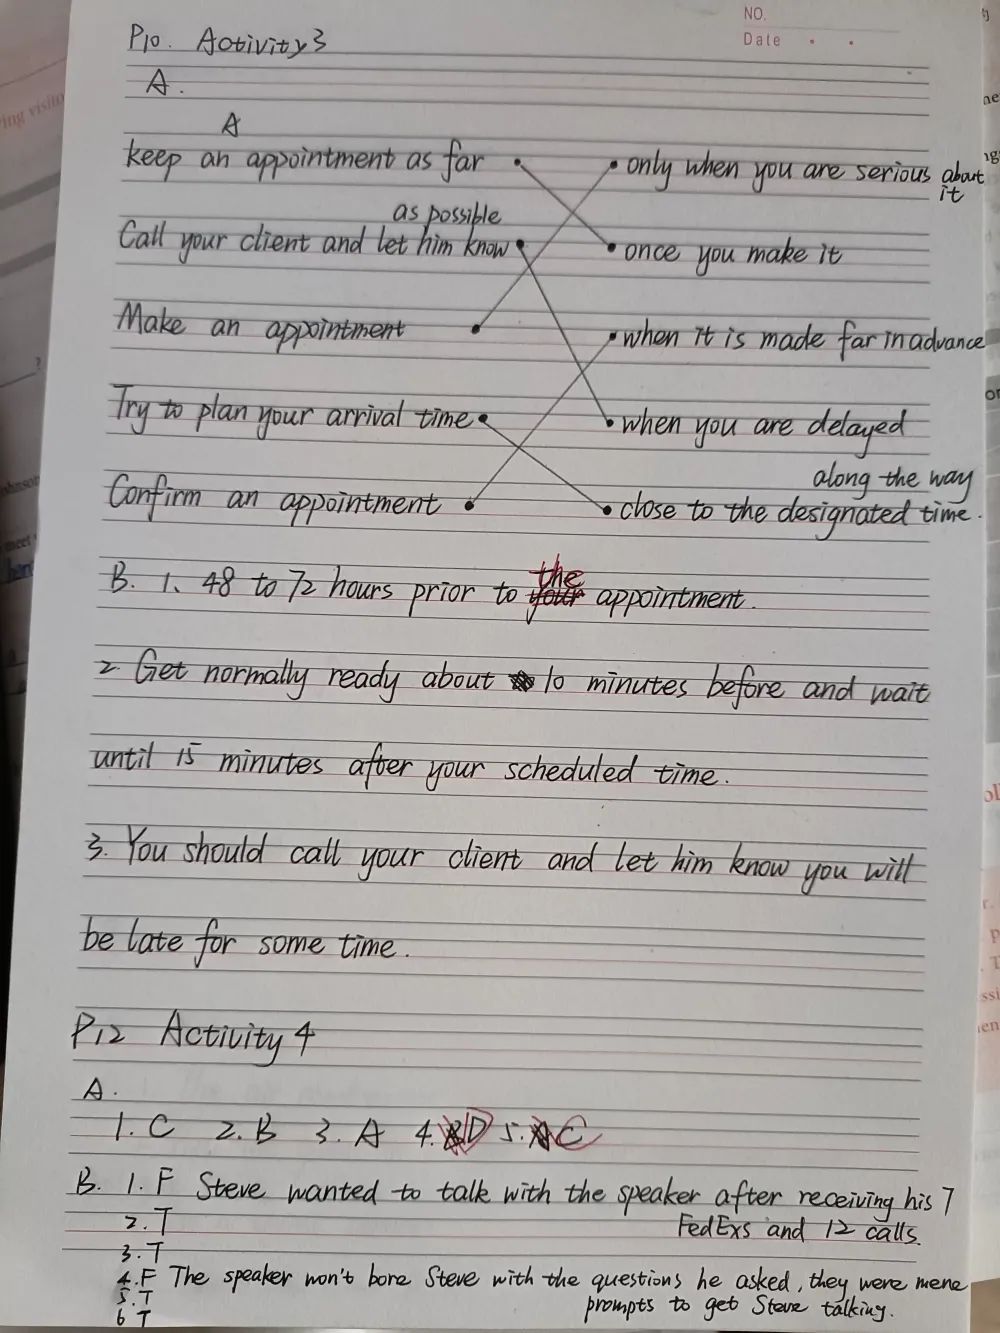 NO.
Date
P10. Activity3
A.
A
keep an appointment as far
as possible
only when you are serious about
it
Call your client and let him know
once you make it
Make an appointment
when it is made far in advance
Try to plan your arrival time
when you are delayed
along the way
Confirm an appointment
close to the designated time.
B. 1. 48 to 72 hours prior to the appointment.
2. Get normally ready about 10 minutes before and wait
until 15 minutes after your scheduled time.
3. You should call your client and let him know you will
be late for some time.
P12 Activity 4
A.
1. C 2. B 3. A 4. D 5. C
B. 1. F Steve wanted to talk with the speaker after receiving his 7
FedExs and 12 calls.
2. T
3. T
4. F The speaker won't bore Steve with the questions he asked, they were mene
prompts to get Steve talking.
5. T
6 T